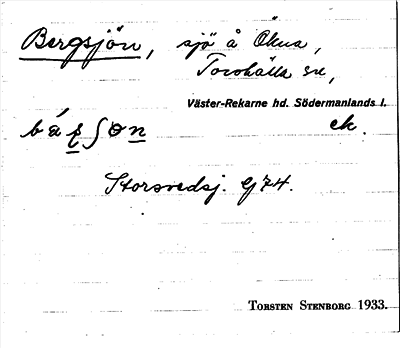 Bergsjön, sjö å Ökna,
Torshälla sn,
Väster-Rekarne hd. Södermanlands l.
ek.
Storsvedsj. Gj 74.
TORSTEN STENBORG 1933.